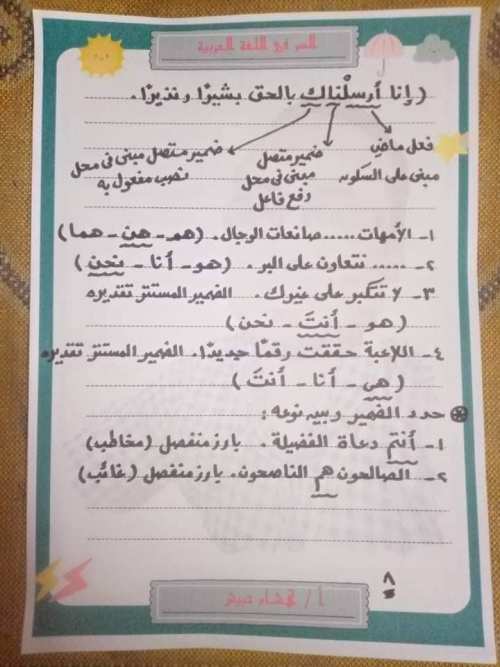 السر في اللغة العربية
( إنا أرسلناك بالحق بشيرًا ونذيرًا.
فعل ماضٍ ضمير متصل ضمير متصل مبنى فى محل
مبنى على السكون مبنى فى محل نصب مفعول به
رفع فاعل
١- الأمهات ..... صانعات الرجال. (هم - هن - هما)
٢- ..... نتعاون على البر. (هو - أنا - نحن)
٣- لا تتكبر على غيرك. الضمير المستتر تقديره
(هو - أنتَ - نحن)
٤- اللاعبة حققت رقمًا جديدًا. الضمير المستتر تقديره
(هى - أنا - أنتَ)
حدد الضمير وبين نوعه:
١- أنتم دعاة الفضيلة. بارز منفصل (مخاطب)
٢- الصالحون هم الناصحون. بارز منفصل (غائب)
٨